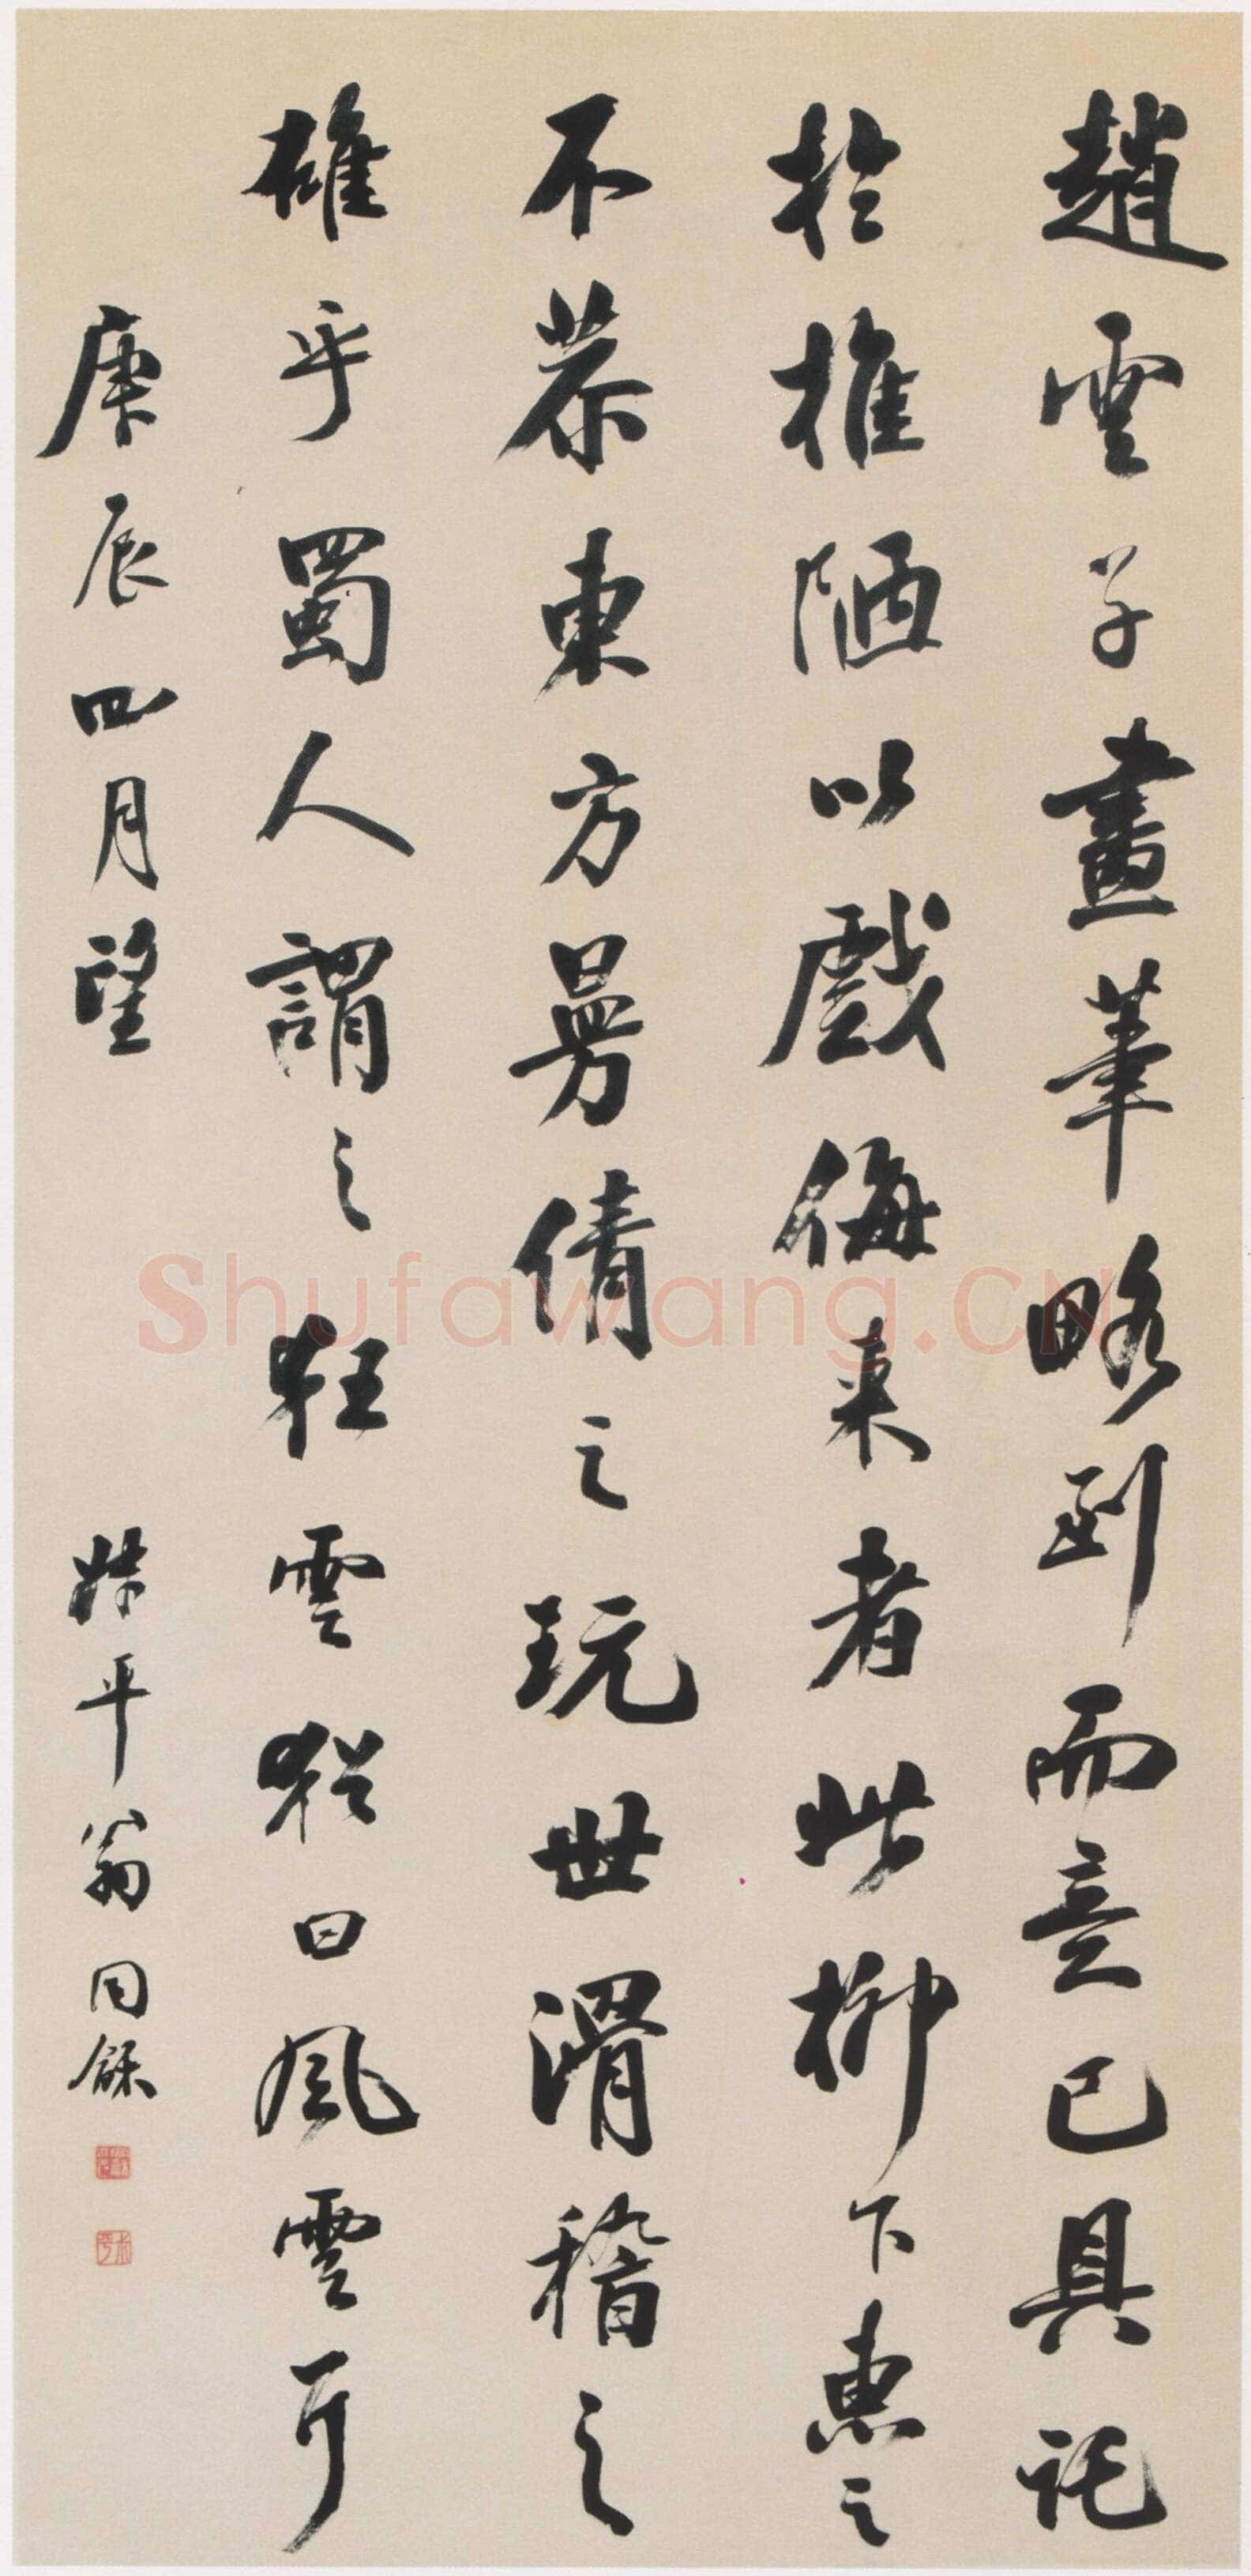 趙雲子畫筆略到而意已具託
於椎陋以戲侮来者此柳下惠之
不恭東方曼倩之玩世滑稽之
雄乎蜀人謂之狂雲猶曰風雲耳
庚辰四月望
叔平翁同龢
Shufawang.CN